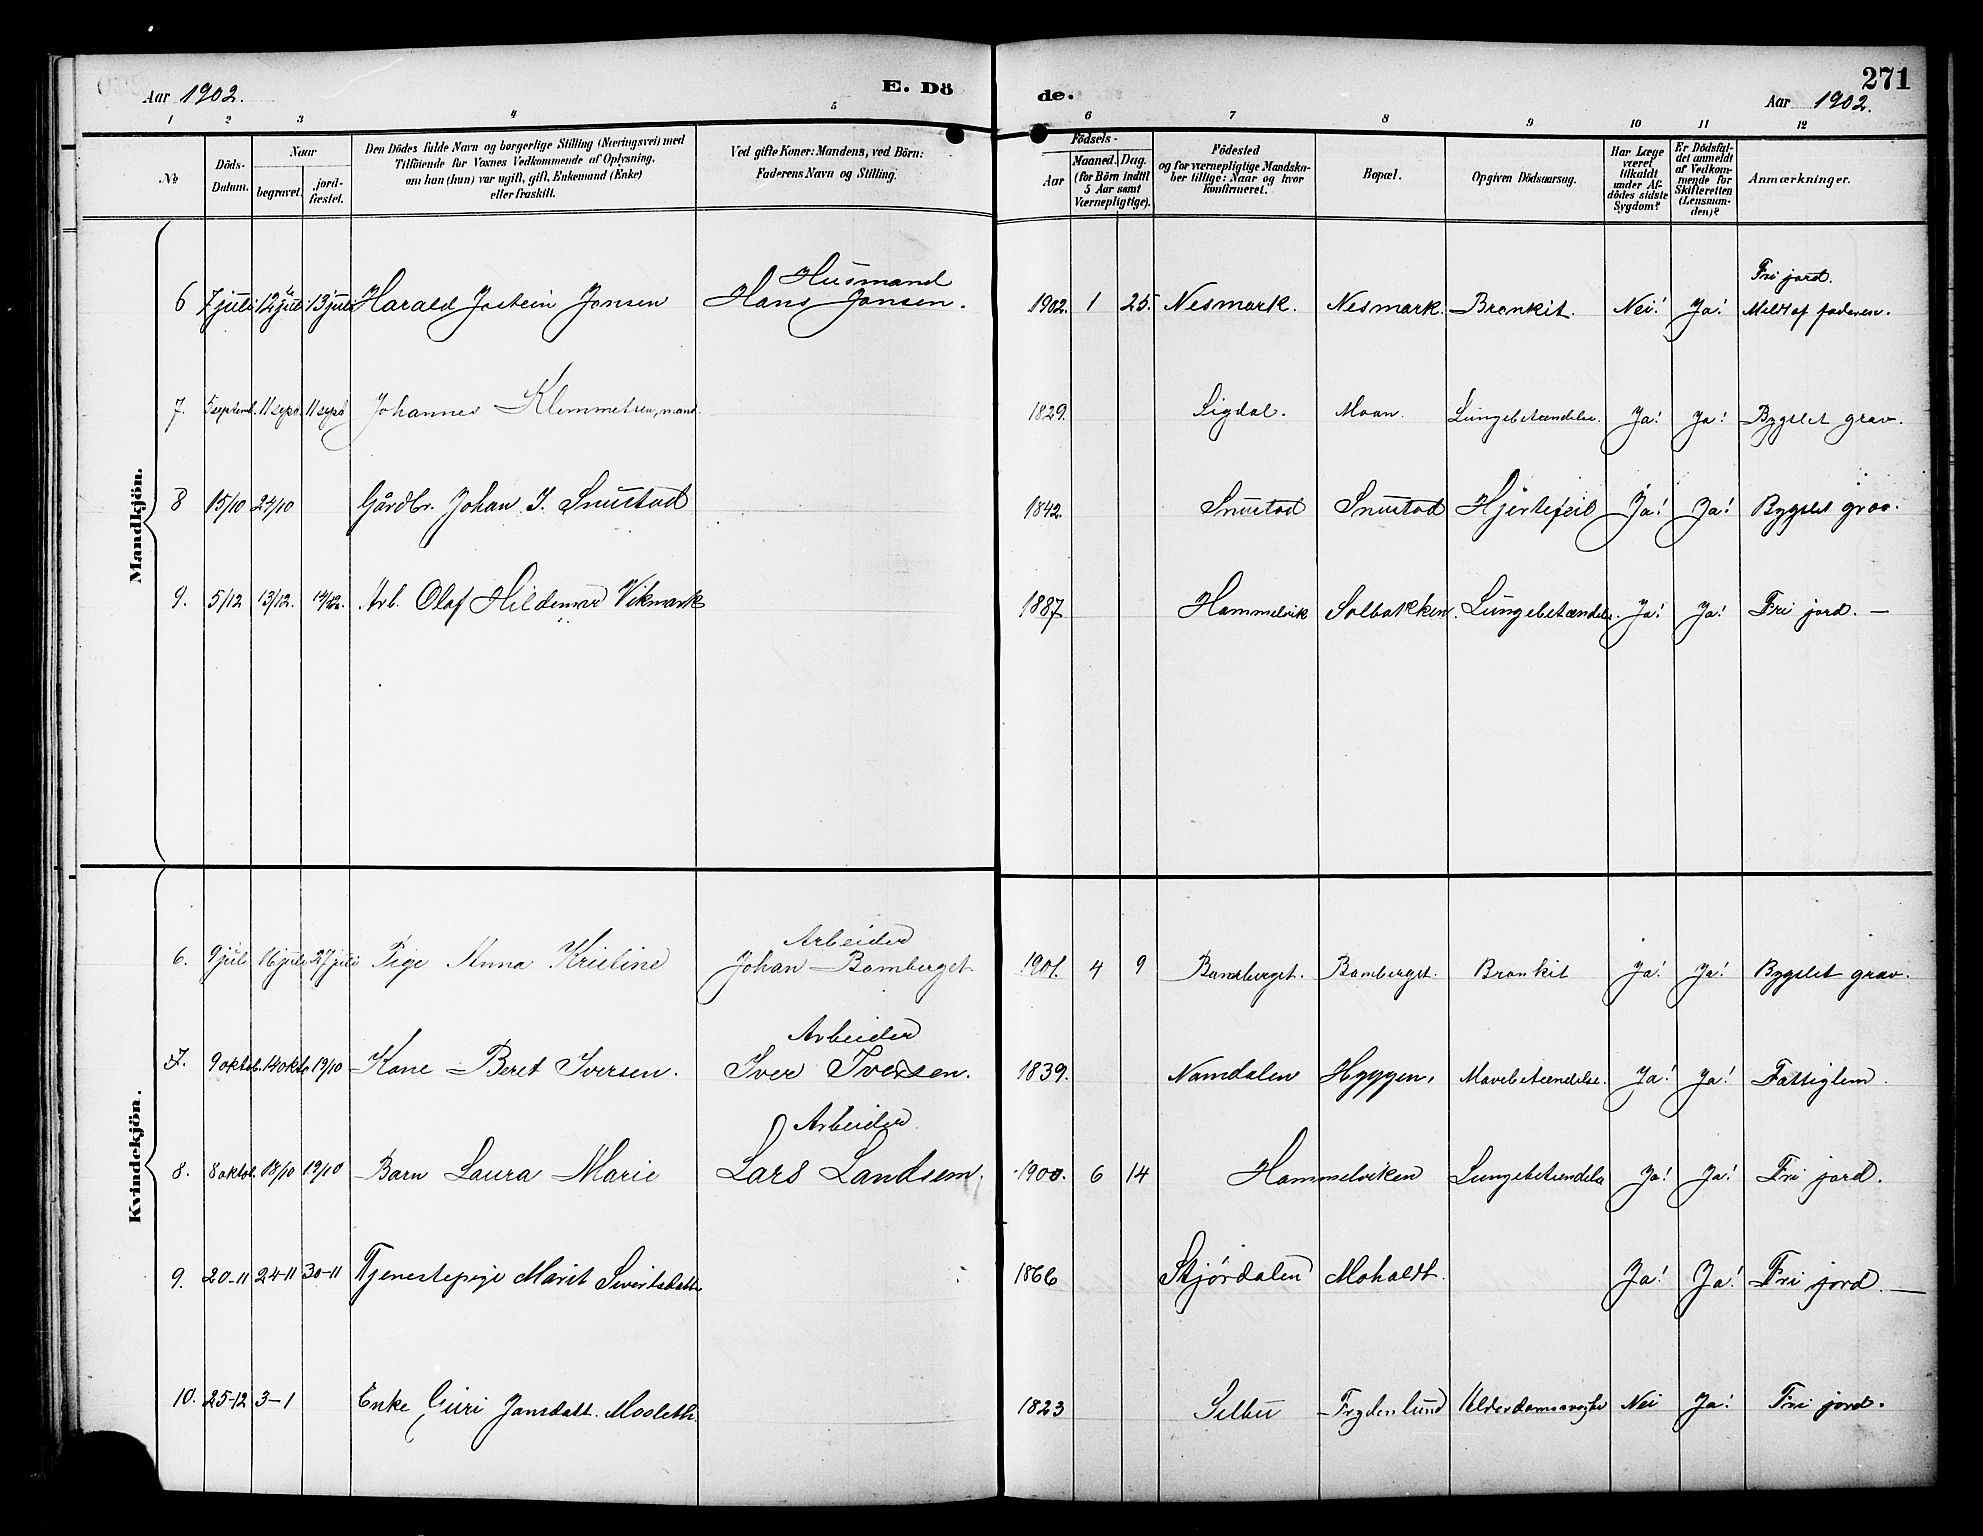 Aar 1902.
E. Dö
de.
Aar 1902.
271
1 2 3 4 5 6 7 8 9 10 11 12
№
Döds-Datum.
Naar
begravet.
jord-fæstet.
Den Dödes fulde Navn og borgerlige Stilling (Næringsvei) med
Tilföiende for Voxnes Vedkommende af Oplysning,
om han (hun) var ugift, gift, Enkemand (Enke)
eller fraskilt.
Ved gifte Koner: Mandens, ved Börn:
Faderens Navn og Stilling.
Födsels-
Aar
Maaned. Dag.
(for Börn indtil
5 Aar samt
Værnepligtige).
Födested
og for værnepligtige Mandska-
ber tillige: Naar og hvor
konfirmeret.
Bopæl.
Opgiven Dödsaarsag.
Har Læge
været
tilkaldt
under Af-
dödes sidste
Sygdom?
Er Dödsfal-
det anmeldt
af Vedkom-
mende for
Skifteretten
(Lensman-
den)?
Anmærkninger.
Mandkjön.
Husmand
Fri jord.
6 7 juli 12 juli 13 juli Harald Jostein Jonsen Hans Jonsen. 1902. 1 25. Nesmark. Nesmark. Bronkit. Nei! Ja! Meldt af faderen.
7. 5 septemb. 11 sept 11 sept Johannes Klemmetsen, mand. 1829. Sigdal. Moan. Lungebetændelse. Ja! Ja! Bygslet grav.
8 15/10 24/10 Gårdbr. Johan J. Snustad 1842. Snustad Snustad Hjertefeil Ja! Ja! Bygslet grav.
9. 5/12 13/12. 14/12. Arb. Olaf Hildemar Vikmark 1887 Hommelvik Solbakken. Lungebetændelse. Ja! Ja! Fri jord. —
Kvindekjön.
Arbeider
6. 9 juli 16 juli 27 juli Pige Anna Kristine Johan Bomberget 1901. 4 9 Bomberget. Bomberget. Bronkit Ja! Ja! Bygslet grav.
Arbeider
7. 9 oktob. 14 okto 19/10 Kone Beret Iversen. Iver Iversen. 1839. Namdalen Hyggen. Mavebetændelse. Ja! Ja! Fattiglem.
Arbeider
8. 8 oktob. 18/10 19/10 Barn Laura Marie Lars Landsem. 1900. 6 14 Hommelviken Lungebetændelse Ja! Ja! Fri jord.
9. 20-11 24-11 30-11 Tjenestepige Marit Sivertsdatter 1866 Stjørdalen Moholdt. Ja! Ja! Fri jord. —
10. 25-12 3-1 Enke Guri Jonsdatt. Mosleth 1823 Selbu Frydenlund Alderdomssvaghe Nei Ja! Fri jord.